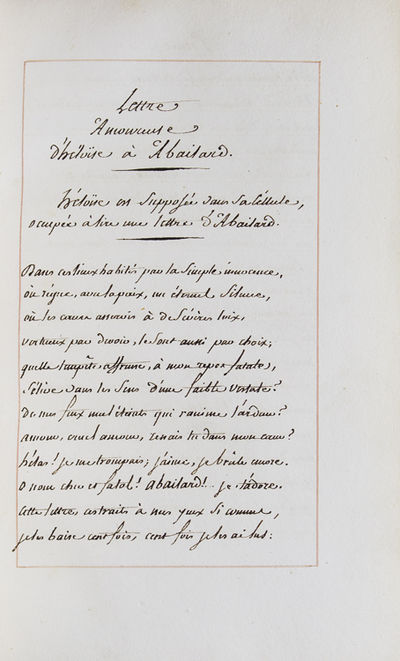 Lettre
Amoureuse
d'héloïse à Abailard.
héloïse est supposée dans sa céllule,
occupée à lire une lettre d'Abailard.
Dans ces lieux habités par la simple innocence,
où régne, avec la paix, un éternel silence,
où les cœurs asservis à de sévères loix,
vertueux par devoir, le sont aussi par choix;
quelle tempête affreuse, à mon repos fatale,
s'élève dans les sens d'une faible vestale?
De mes feux mal éteints qui ranime l'ardeur?
amour, cruel amour, renais tu dans mon cœur?
hélas! je me trompais; j'aime, je brûle encore.
O nom cher et fatal! abailard!.. je t'adore.
cette lettre, ces traits à mes yeux si connus,
je les baise cent fois, cent fois je les ai lus: